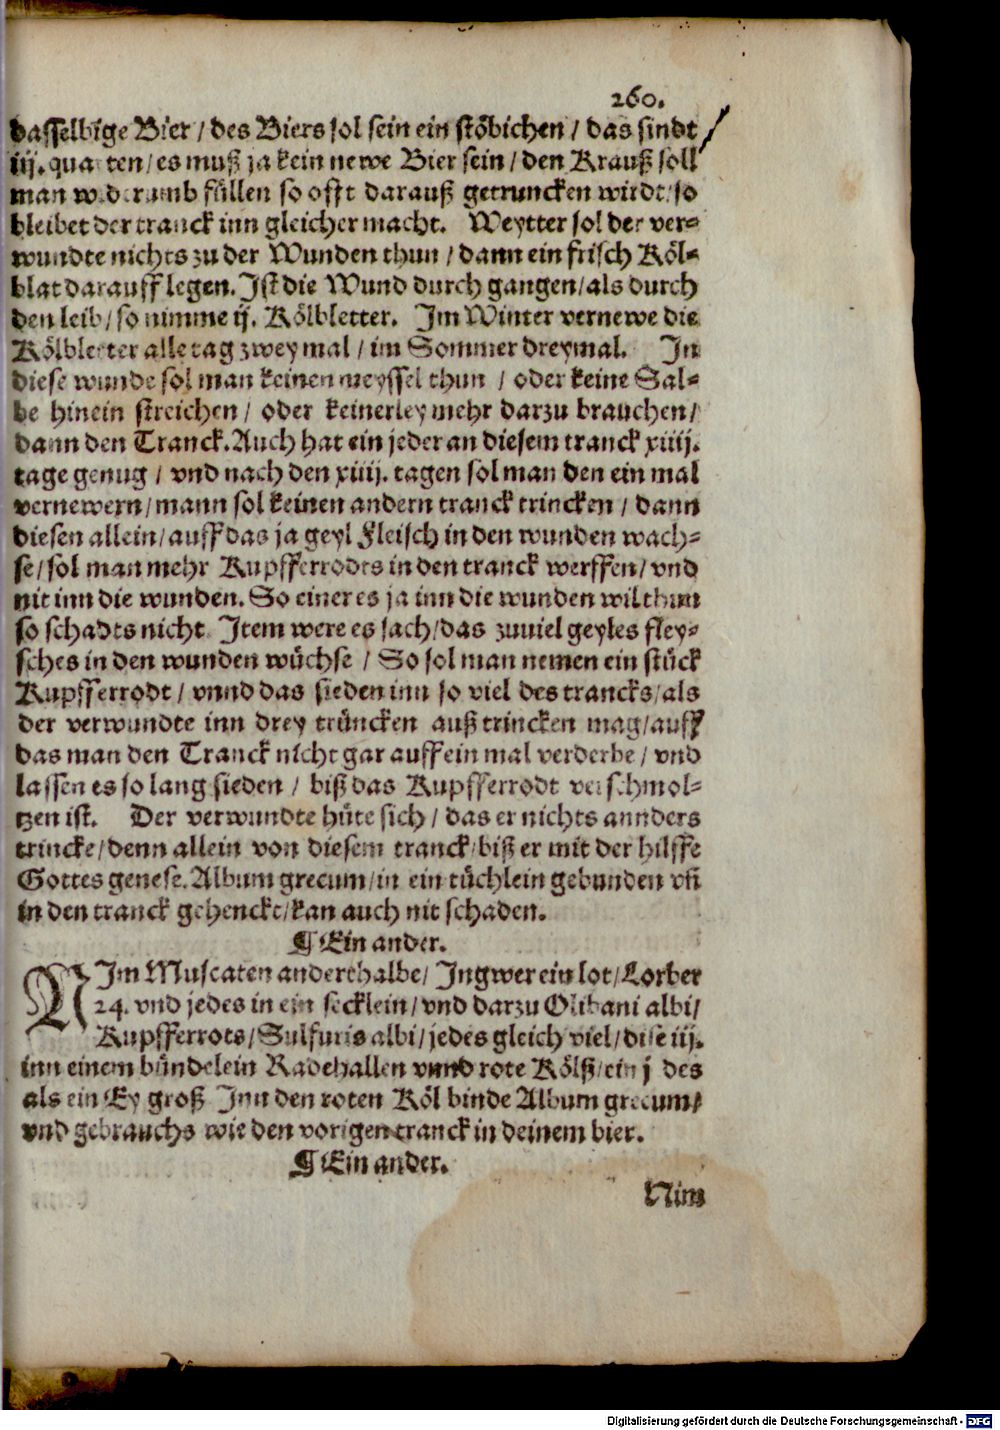 260.
dasselbige Bier / des Biers sol sein ein stöbichen / das sindt
iij. quarten / es muß ja kein newe Bier sein / den Krauß soll
man widerumb füllen so offt darauß getruncken wirdt / so
bleibet der tranck inn gleicher macht. Weytter sol der ver-
wundte nichts zu der Wunden thun / dann ein frisch Köl-
blat darauff legen. Ist die Wund durch gangen / als durch
den leib / so nimme ij. Kölbletter. Im Winter vernewe die
Kölbletter alle tag zwey mal / im Sommer dreymal. In
diese wunde sol man keinen meyssel thun / oder keine Sal-
be hinein streichen / oder keinerley mehr darzu brauchen /
dann den Tranck. Auch hat ein jeder an diesem tranck xiiij.
tage genug / vnd nach den xiiij. tagen sol man den ein mal
vernewern / mann sol keinen andern tranck trincken / dann
diesen allein / auff das ja geyl Fleisch in den wunden wach-
se / sol man mehr Kupfferrodts in den tranck werffen / vnd
nit inn die wunden. So einer es ja inn die wunden wil thun
so schadts nicht. Item were es sach / das zuuiel geyles fley-
sches in den wunden wüchse / So sol man nemen ein stück
Kupfferrodt / vnnd das sieden inn so viel des trancks / als
der verwundte inn drey trüncken auß trincken mag / auff
das man den Tranck nicht gar auff ein mal verderbe / vnd
lassen es so lang sieden / biß das Kupfferrodt verschmol-
tzen ist. Der verwundte hüte sich / das er nichts annders
trincke / denn allein von diesem tranck / biß er mit der hilffe
Gottes genese. Album grecum / in ein tüchlein gebunden vñ
in den tranck gehenckt / kan auch nit schaden.
¶ Ein ander.
NIm Muscaten anderthalbe / Ingwer ein lot / Lorber
24. vnd jedes in ein secklein / vnd darzu Olibani albi /
Kupfferrots / Sulfuris albi / jedes gleich viel / dise iij.
inn einem bündelein Radehallen vnnd rote Kölß / ein j des
als ein Ey groß Inn den roten Köl binde Album grecum /
vnd gebrauchs wie den vorigen tranck in deinem bier.
¶ Ein ander.
Nim
Digitalisierung gefördert durch die Deutsche Forschungsgemeinschaft - DFG